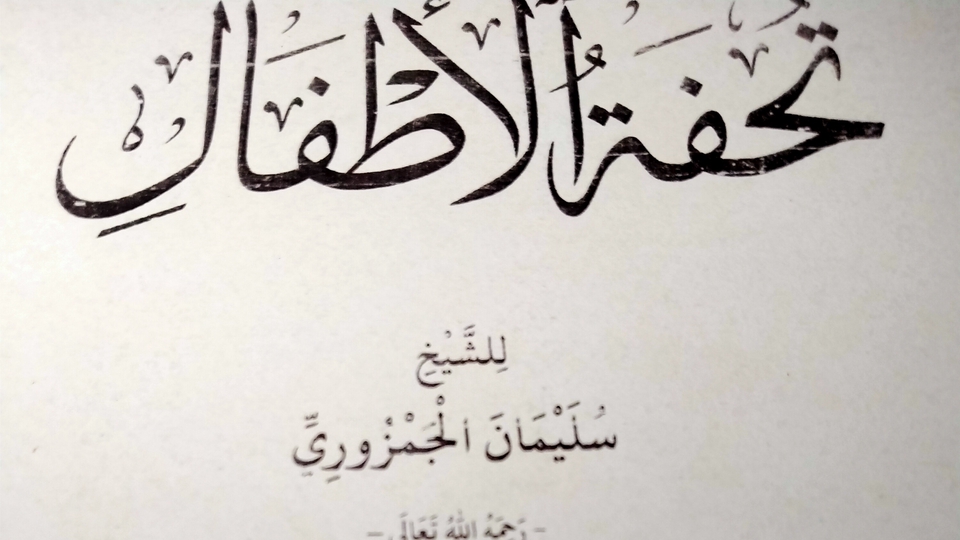 تحفة الأطفال
لِلشَّيْخِ
سُلَيْمَانَ الْجَمْزُورِيِّ
- رَحِمَهُ اللهُ تَعَالَى -